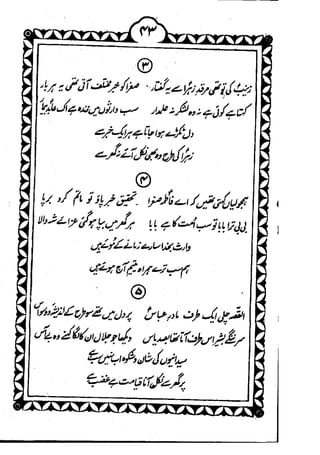 ۴۳
۳
زینبؑ کی تو تھی مرقدِ زہراؑ سے یہ گفتار صغراؑ کو خبر مختلف آتی تھی یہ ہر بار
کہتا ہے کوئی ہے نہ وہ لشکر نہ علمدار سب وارثوں میں زندہ ہے اک عابدِ بیمار
دل ٹکڑے ہوا جاتا ہے ہر ایک خبر سے
زہراؑ کی طرح وہ بھی نکل آئے نہ گھر سے
۴
ہمجولیاں کہتی تھیں کہ اے فاطمہ صغراؑ تحقیق خبر پاؤ تو ماتم کرو برپا
بی بی ترا بابا تو سب امت کا ہے بابا ہر گھر میں بپا ہوگی عزائے شہِ والا
وارث بخدا سارے زمانے کے موئے ہیں
ہم سب ترے ہمراہ یتیم آج ہوئے ہیں
۵
القصہ چلی ایک طرف مادرِ عباسؑ پر دل میں تھے سو طرح کے اندیشہ و وسواس
سر ننگے بشیر اس طرف آتا تھا بصد یاس دیکھا جو جلال ان کا لگا کہنے وہ بے آس
سیدانیوں کی شان و شکوہ اب نہیں ہے
پر گھر سے نکل آنا قیامت ہے غضب ہے